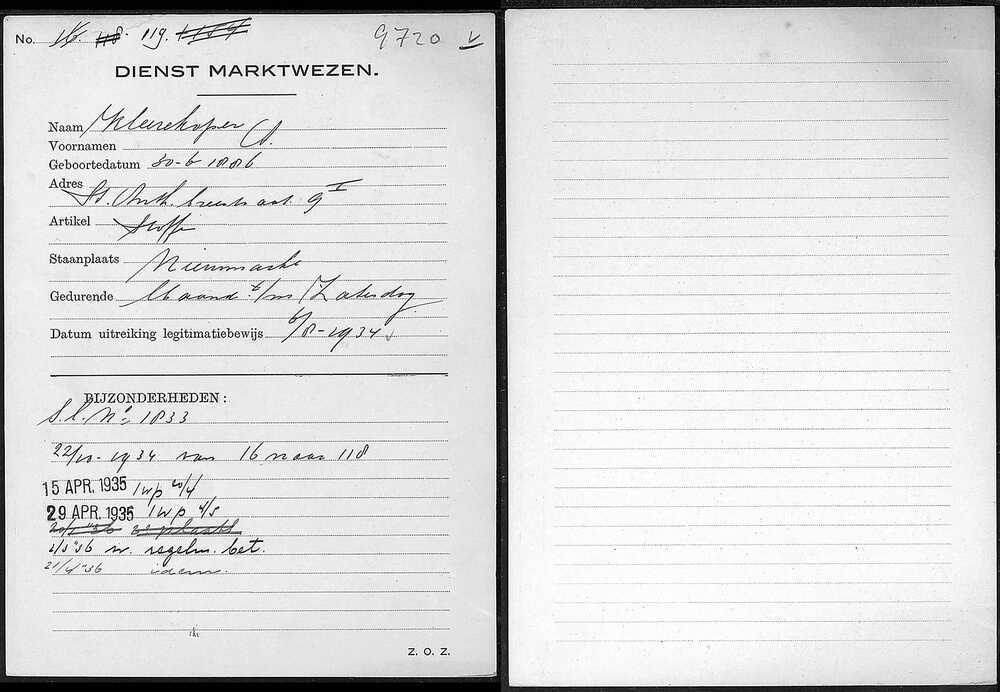 No. 16. 118. 119. 1189 9720 v
DIENST MARKTWEZEN.
Naam Kleerekoper
Voornamen A.
Geboortedatum 30-6-1886
Adres St. Anth. breestraat 9 I
Artikel Stoffen
Staanplaats Nieuwmarkt
Gedurende Maand. t/m Zaterdag
Datum uitreiking legitimatiebewijs 6/8-1934
BIJZONDERHEDEN:
S.l. No 1833
22/10-1934 van 16 naar 118
15 APR. 1935 1wp 20/4
29 APR. 1935 1wp 4/5
geplaatst
4/3 '36 n. regelm. bet.
21/4 '36 idem.
Z. O. Z.